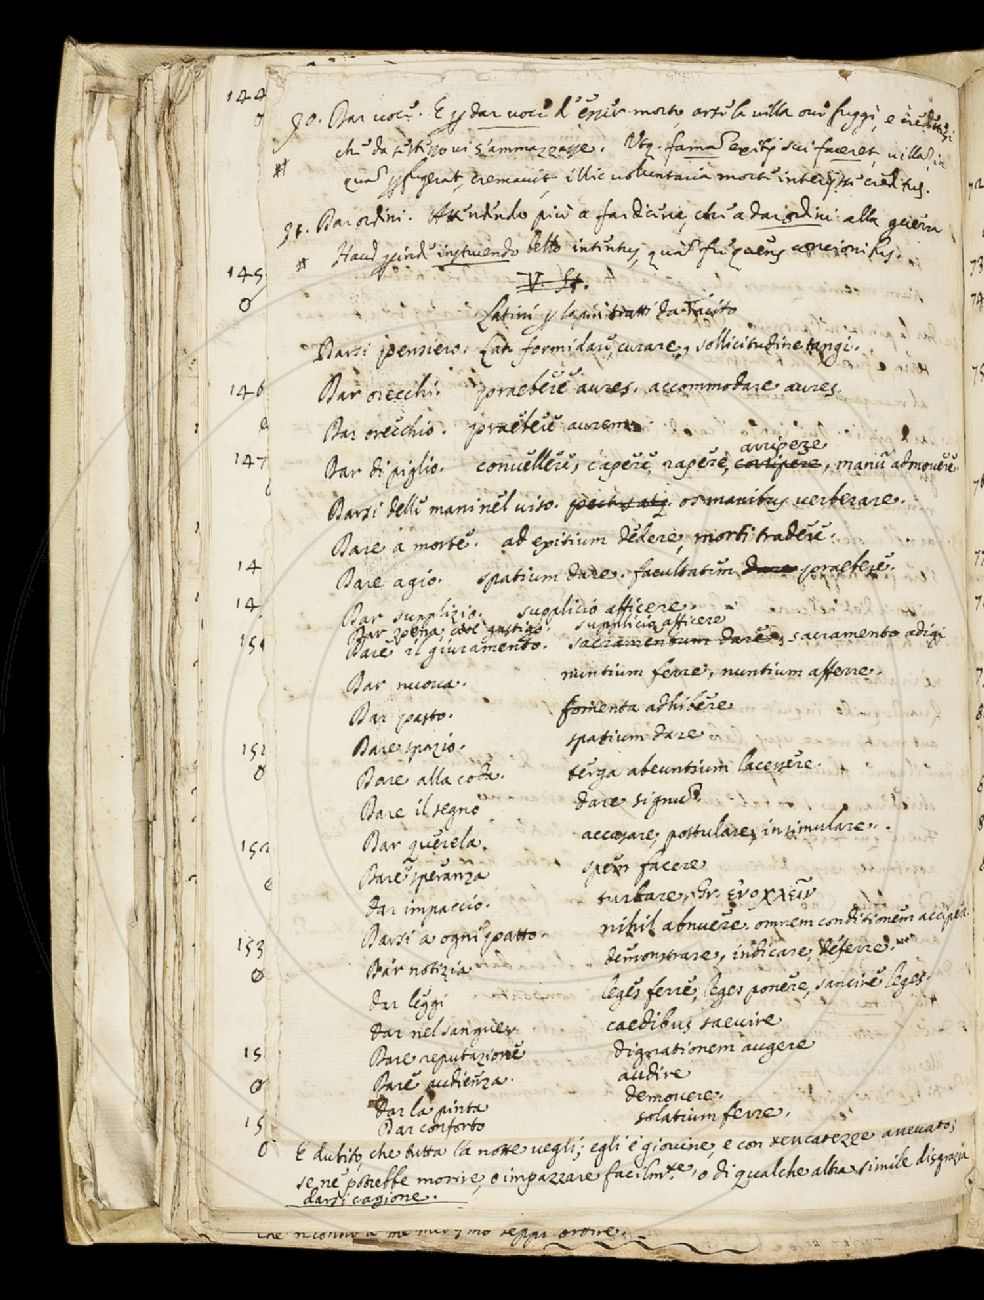 90. Dar voce. E p dar voce d'esser morto arse la villa ove fuggi, e
che da tutti
famam exitij sui faceret, villam in
quam perfugerat, cremavit, illic voluntaria morte interijsse creditus.
91. Dar ordini. Attendendo più a far dicerie, che a dar ordini alla guerra
Haud perinde instruendo bello intentus, quam frequens concionibus.
V. St.
Latini p lo più tratti da Tacito
Darsi pensiero. Lat. formidare, curare, sollicitudine tangi.
Dar orecchi. praebere aures. accommodare aures
Dar orecchio. praebere aurem
arripere
Dar di piglio. convellere, capere, rapere, corripere, manu admovere
Darsi delle mani nel viso. pectus atq. os manibus verberare.
Dare a morte. ad exitium dedere, morti tradere.
Dare agio. spatium dare. facultatem dare praebere.
Dar supplizio. supplicio afficere.
Dar pena, cioè gastigo. supplicio afficere
Dare il giuramento. sacramentum dare, sacramento adigi
Dar nuova. nuntium ferre, nuntium afferre.
Dar pasto. fomenta adhibere
Dare spazio. spatium dare.
Dare alla coda. terga abeuntium lacessere.
Dare il segno dare signum
Dar querela. accusare, postulare, insimulare.
Dare speranza spem facere
dar impaccio. turbare, Gr. ἐνοχλεῖν
Darsi a ogni patto. nihil abnuere. omnem conditionem accipere
Dar notizia demonstrare, indicare, deferre.
dar leggi leges ferre, leges ponere, sancire leges.
dar nel sangue caedibus saevire
Dare reputazione dignationem augere
Dare audienza. audire
dar la pinta demovere.
Dar conforto solatium ferre.
E dubito, che tutta la notte vegli; egli è giovine, e con allevato;
se ne potrebbe morire, o impazzare facilm.te, o di qualche altra simile disgrazia
darsi cagione.